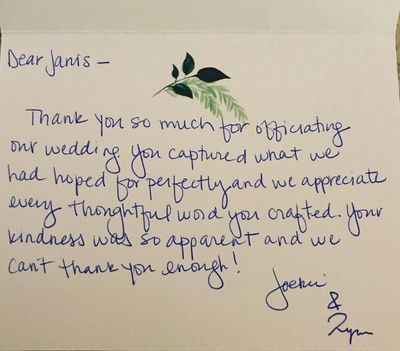 Dear Janis –
Thank you so much for officiating
our wedding. You captured what we
had hoped for perfectly and we appreciate
every thoughtful word you crafted. Your
kindness was so apparent and we
can't thank you enough!
&
Ryan